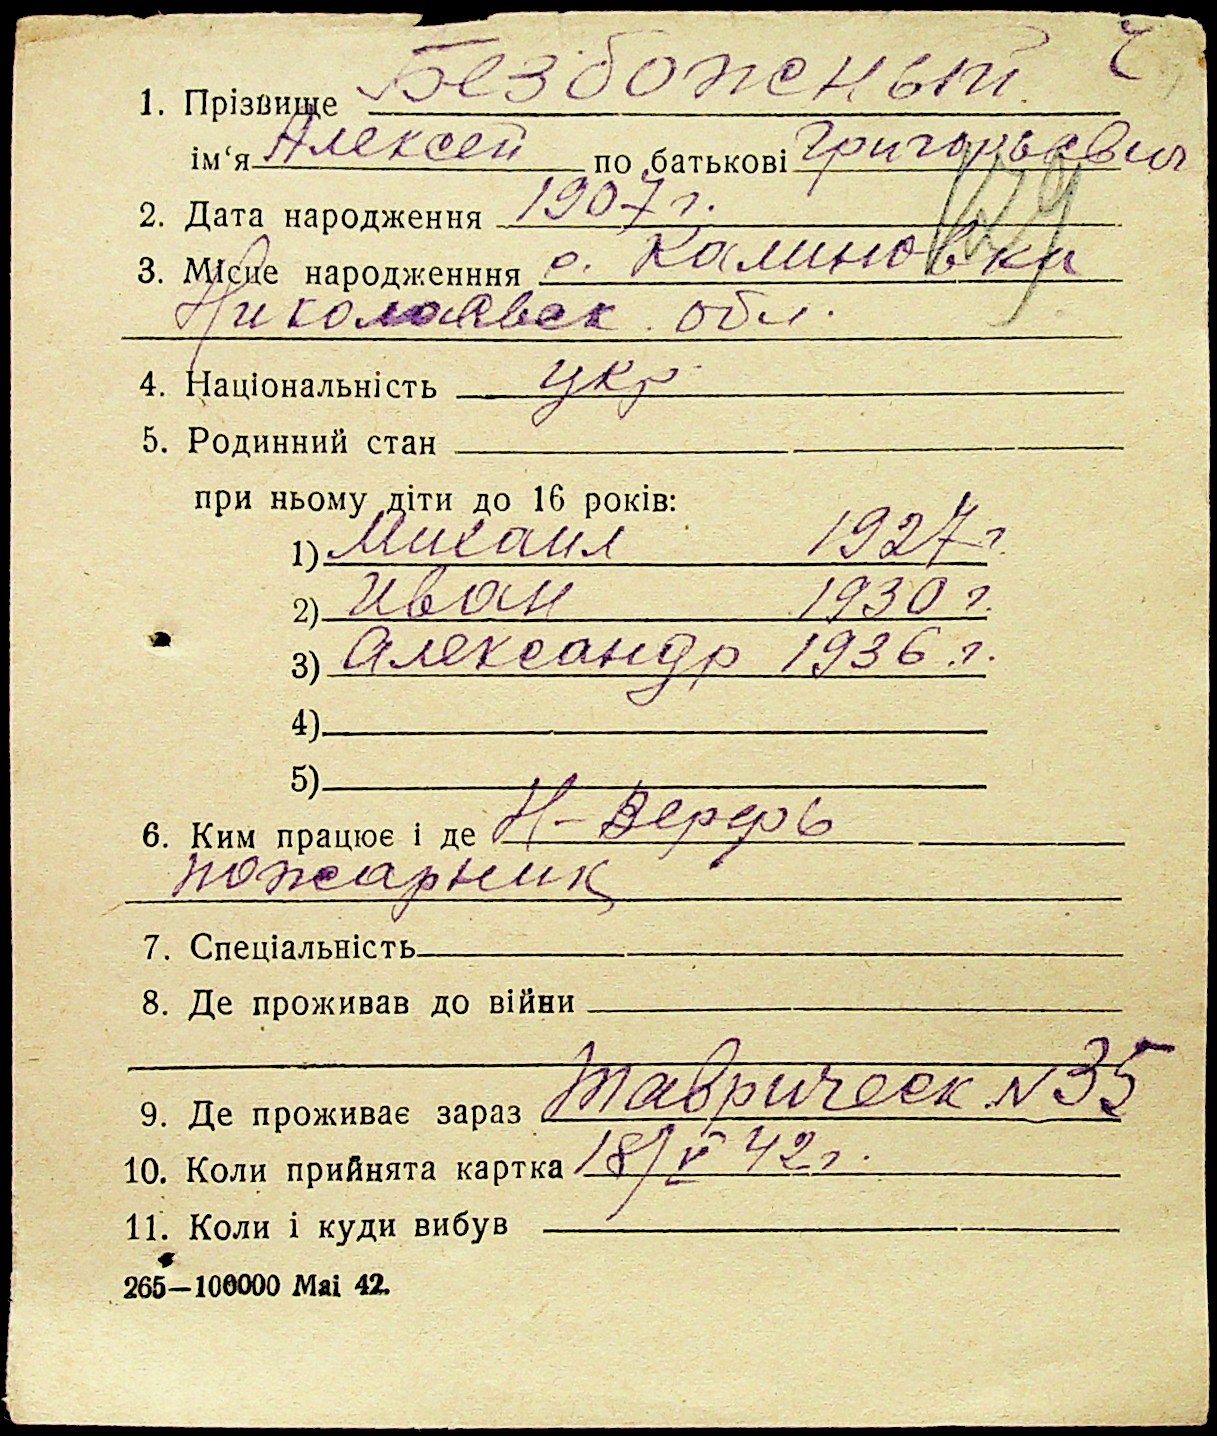 1. Прізвище Безбожный
ім‘я Алексей по батькові Григорьевич
2. Дата народження 1907 г.
3. Місце народженння с. Калиновка
Николаевск обл.
4. Національність укр
5. Родинний стан
при ньому діти до 16 років:
1) Михаил 1927 г.
2) Иван 1930 г.
3) Александр 1936 г.
4)
5)
6. Ким працює і де Н-Верфь
пожарник
7. Спеціальність
8. Де проживав до війни
9. Де проживає зараз Таврическ N 35
10. Коли прийнята картка 18/V 42 г.
11. Коли і куди вибув
265—100000 Mai 42.